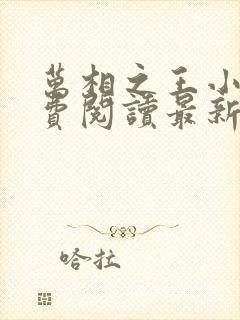 萬相之王小
費閱讀最新
哈拉